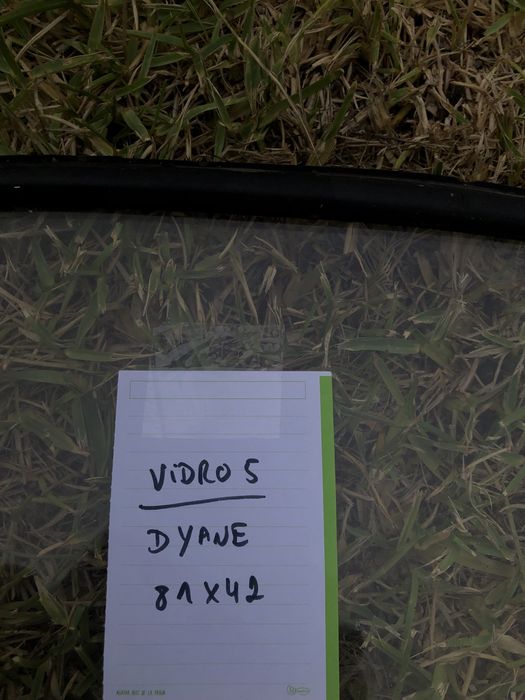 VIDRO 5
DYANE
81X42